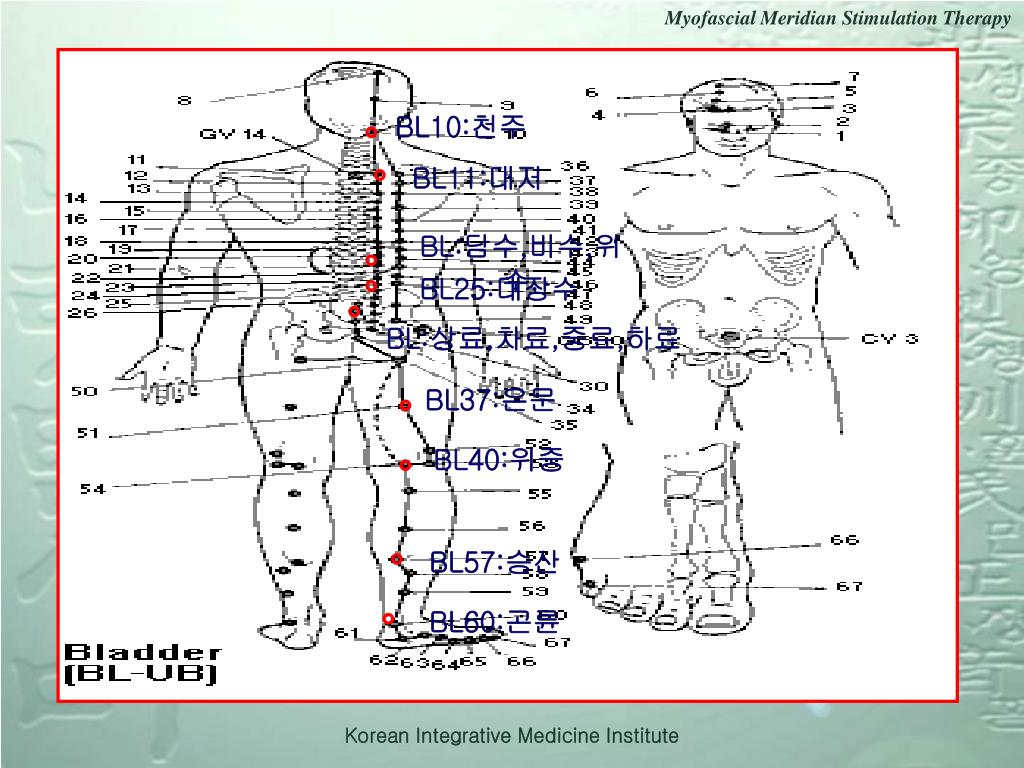 Myofascial Meridian Stimulation Therapy
8
9
GV 14
BL10:천주
10
11
12
13
14
15
16
17
18
19
20
21
22
23
24
25
26
36
37
38
39
40
41
BL11:대저
BL:담수,비수,위
수
BL25:대장수
48
49
BL:상료,차료,중료,하료
50
30
BL37:은문
34
35
51
BL40:위중
54
55
56
BL57:승산
59
BL60:곤륜
61
67
62 63 64 65 66
7
6
5
4
3
2
1
CV 3
66
67
Bladder
(BL-UB)
Korean Integrative Medicine Institute